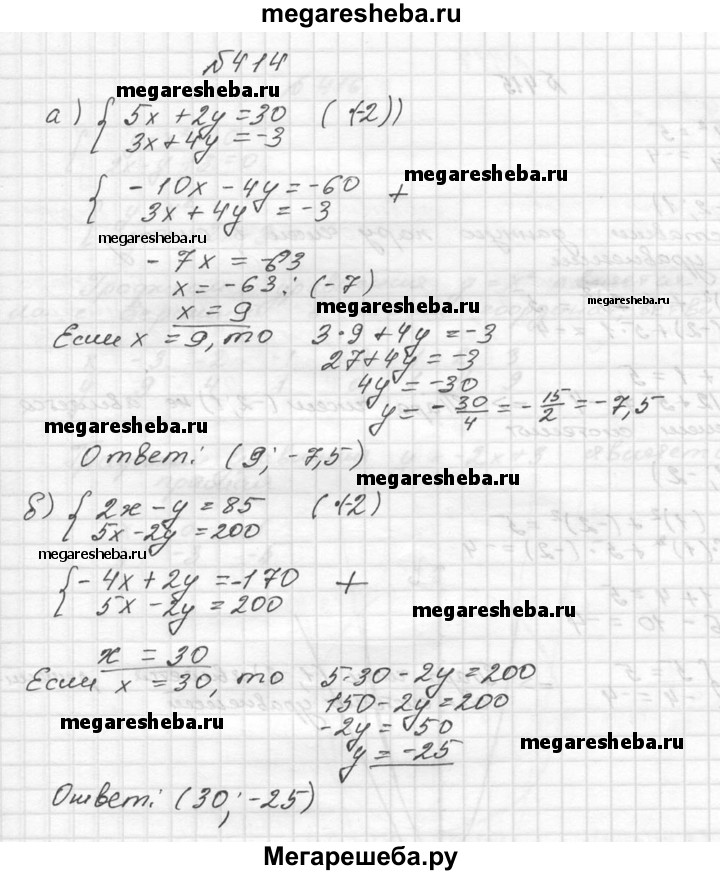 megaresheba.ru
№414
megaresheba.ru
а) { 5x + 2y = 30 (·(-2))
3x + 4y = -3
megaresheba.ru
{ - 10x - 4y = -60 +
3x + 4y = -3
megaresheba.ru
- 7x = -63
x = -63 : (-7)
megaresheba.ru
x = 9
megaresheba.ru
Если x = 9, то 3·9 + 4y = -3
27 + 4y = -3
4y = -30
y = - 30/4 = - 15/2 = -7,5
megaresheba.ru
Ответ: (9; -7,5)
megaresheba.ru
б) { 2x - y = 85 (·(-2)
5x - 2y = 200
megaresheba.ru
{ - 4x + 2y = -170 +
5x - 2y = 200
megaresheba.ru
x = 30
Если x = 30, то 5·30 - 2y = 200
150 - 2y = 200
megaresheba.ru
-2y = 50
y = -25
megaresheba.ru
Ответ: (30; -25)
Мегарешеба.ру